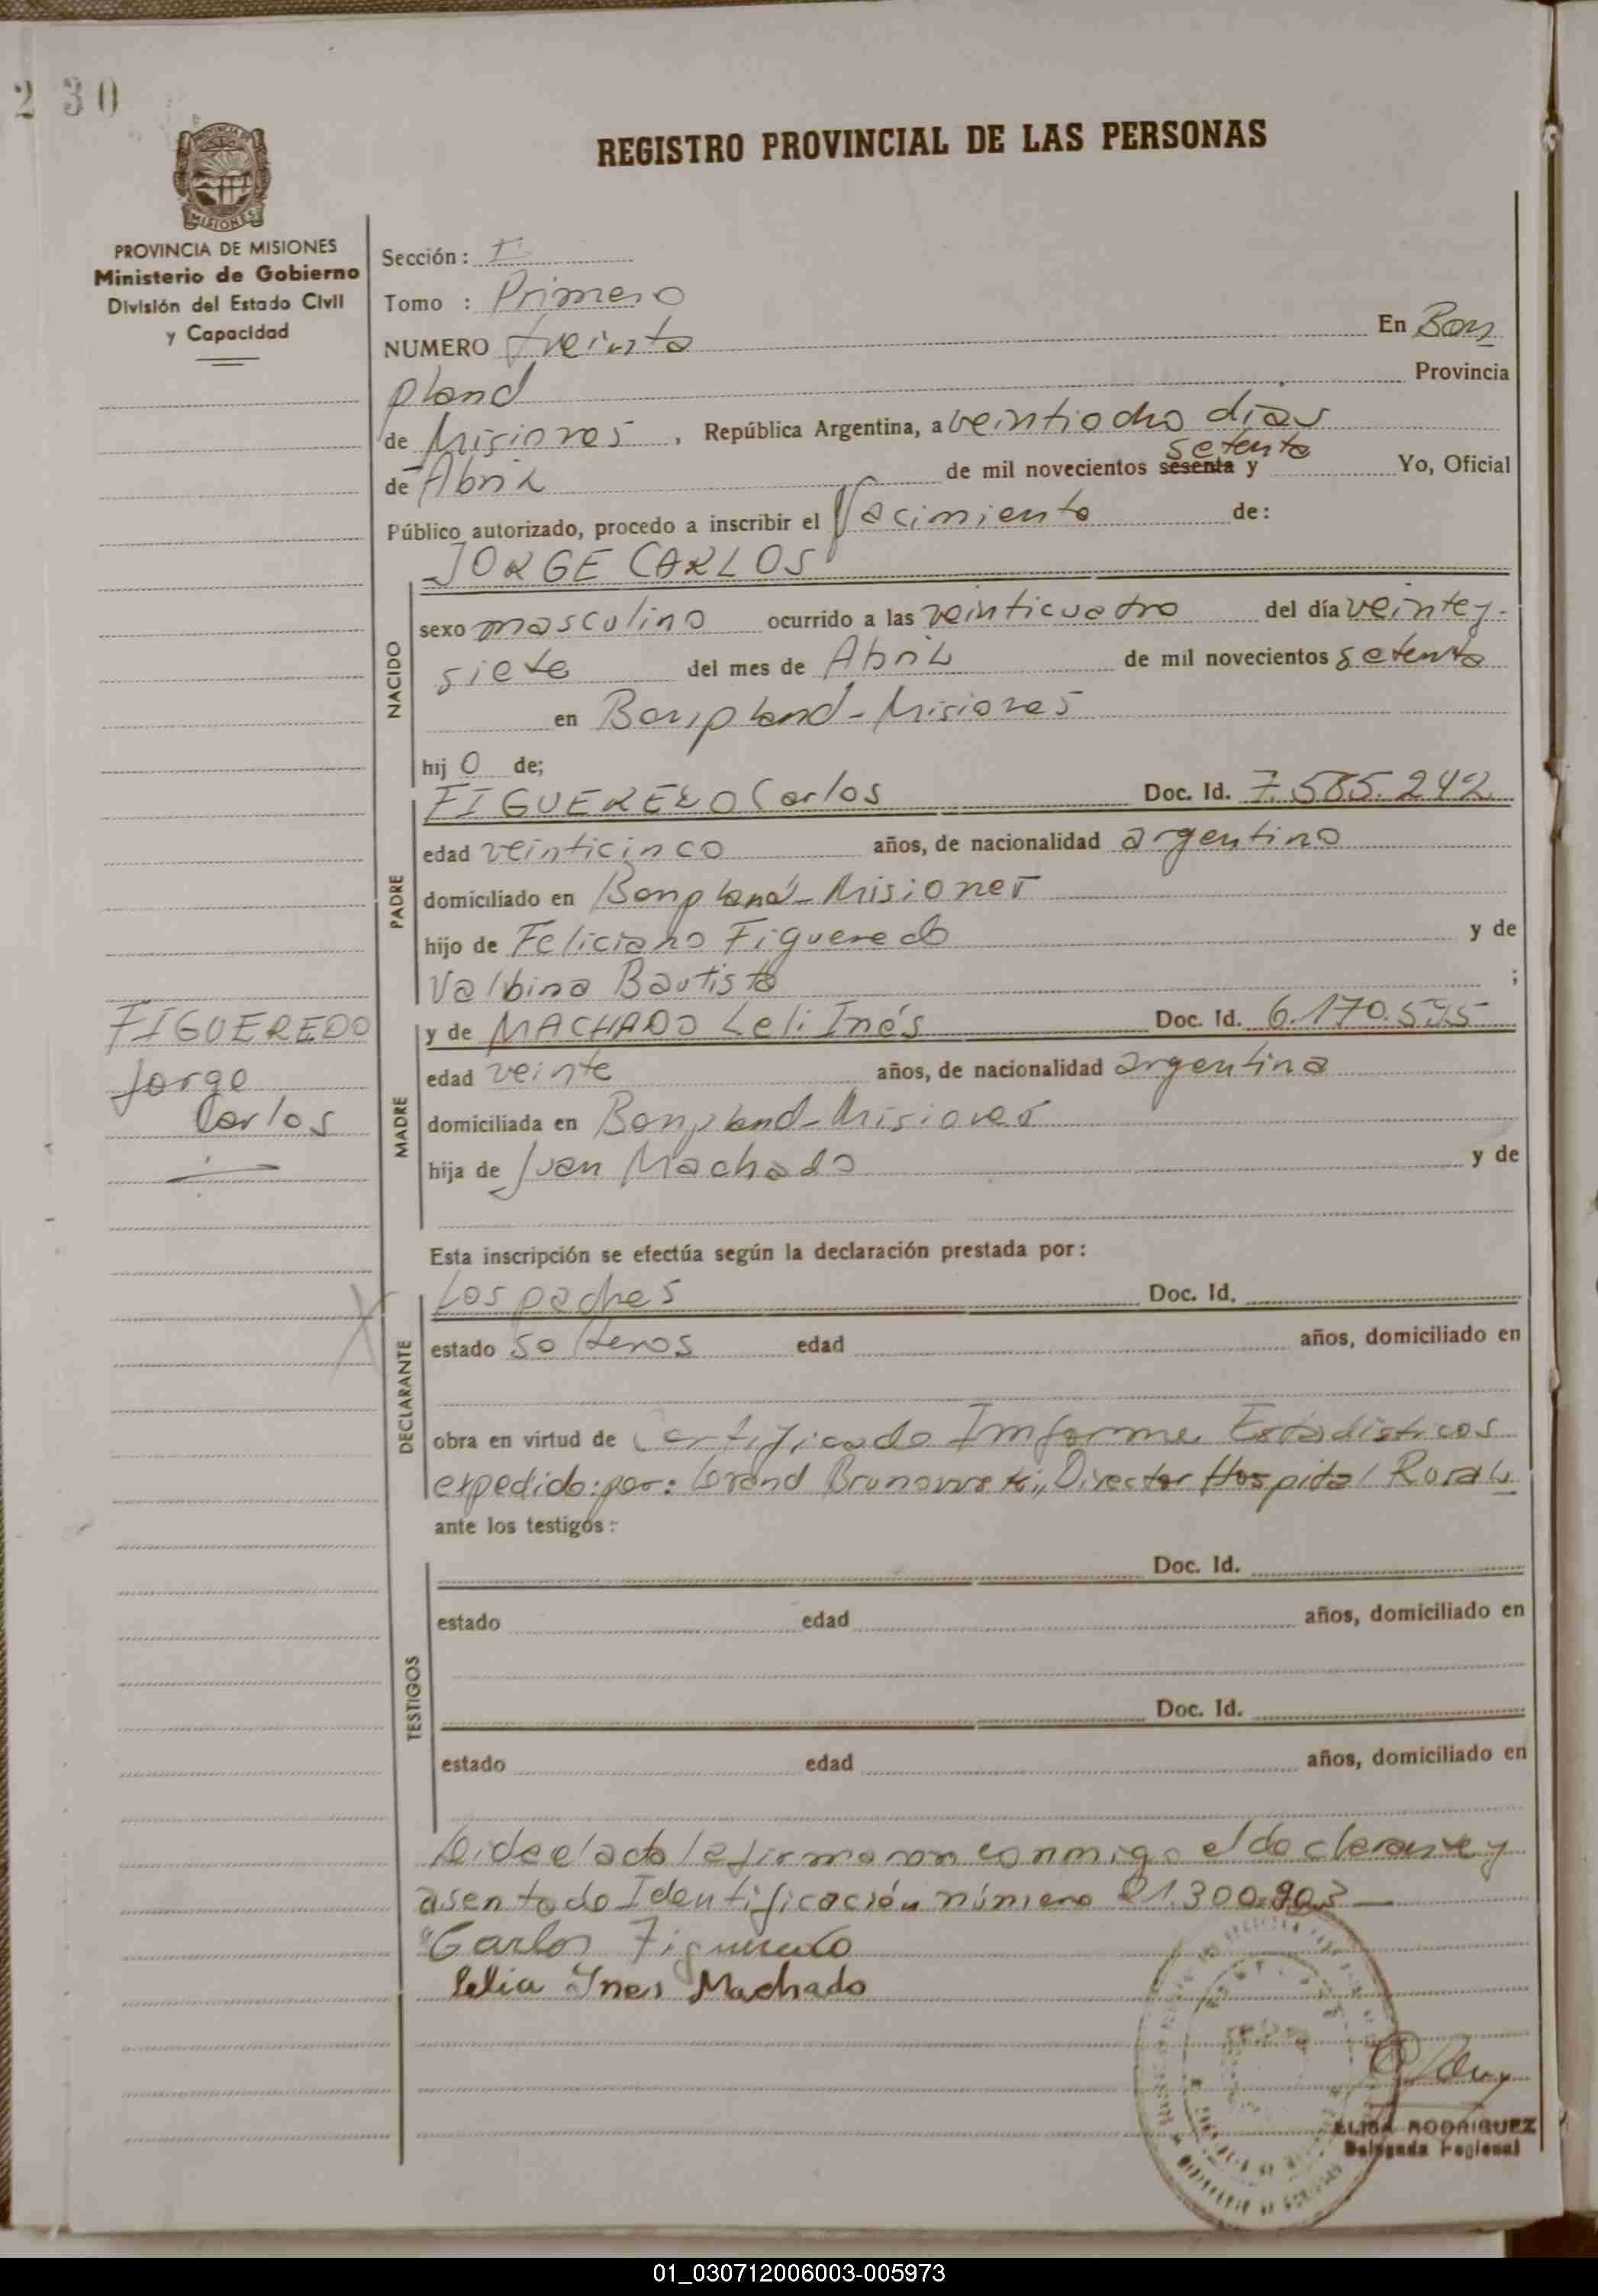 2 30
REGISTRO PROVINCIAL DE LAS PERSONAS
PROVINCIA DE MISIONES
Ministerio de Gobierno
División del Estado Civil
y Capacidad
Sección: I
Tomo : Primero
NUMERO treinta En Bon
pland Provincia
de Misiones, República Argentina, a veintiocho días
de Abril de mil novecientos sesenta y setenta Yo, Oficial
Público autorizado, procedo a inscribir el Nacimiento de:
JORGE CARLOS
NACIDO
sexo masculino ocurrido a las veinticuatro del día veintey-
siete del mes de Abril de mil novecientos setenta
en Bonpland - Misiones
hijo de;
PADRE
FIGUEREDO Carlos Doc. Id. 7.585.242
edad veinticinco años, de nacionalidad argentino
domiciliado en Bonpland - Misiones
hijo de Feliciano Figueredo y de
Valbina Bautista ;
FIGUEREDO
Jorge
Carlos
MADRE
y de MACHADO Leli Inés Doc. Id. 6.170.595
edad veinte años, de nacionalidad argentina
domiciliada en Bonpland - Misiones
hija de Juan Machado y de
Esta inscripción se efectúa según la declaración prestada por:
DECLARANTE
Los padres Doc. Id.
estado solteros edad años, domiciliado en
obra en virtud de Certificado Imforme Estadisticos
expedido por: Brunowski, Director Hospital Rural
ante los testigos:
TESTIGOS
Doc. Id.
estado edad años, domiciliado en
Doc. Id.
estado edad años, domiciliado en
Leida el acta la firmaron conmigo el declarante y
asentado Identificación número 21.300.903
Carlos Figueredo
Lelia Ines Machado
ELIDA RODRIGUEZ
Delegada Regional
01_030712006003-005973